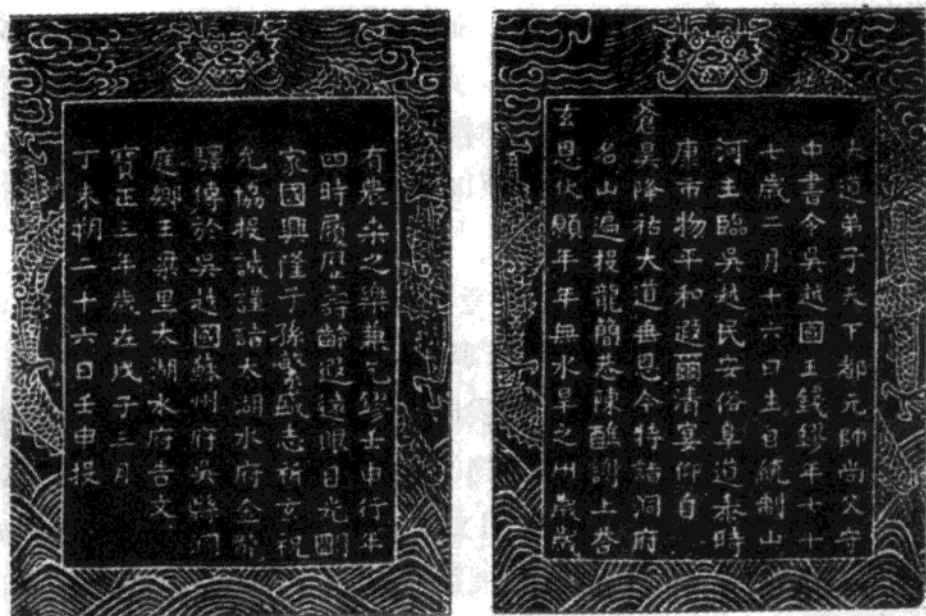 大道弟子天下都元帥尚父守
中書令吳越國王錢鏐年七十
七歲二月十六日生自統制山
河主臨吳越民安俗阜道泰時
康市物平和遐爾清宴仰自
蒼昊降祐大道垂恩今特詣洞府
名山遍投龍簡恭陳醮謝上荅
玄恩伏願年年無水旱之州歲歲
有農桑之樂兼乞鏐壬申行年
四時履歷壽齡遐遠眼目光明
家國興隆子孫繁盛志祈玄祝
允協投誠謹詣太湖水府金龍
驛傳於吳越國蘇州府吳縣洞
庭鄉王梁里太湖水府告文
寶正三年歲在戊子三月
丁未朔二十六日壬申投